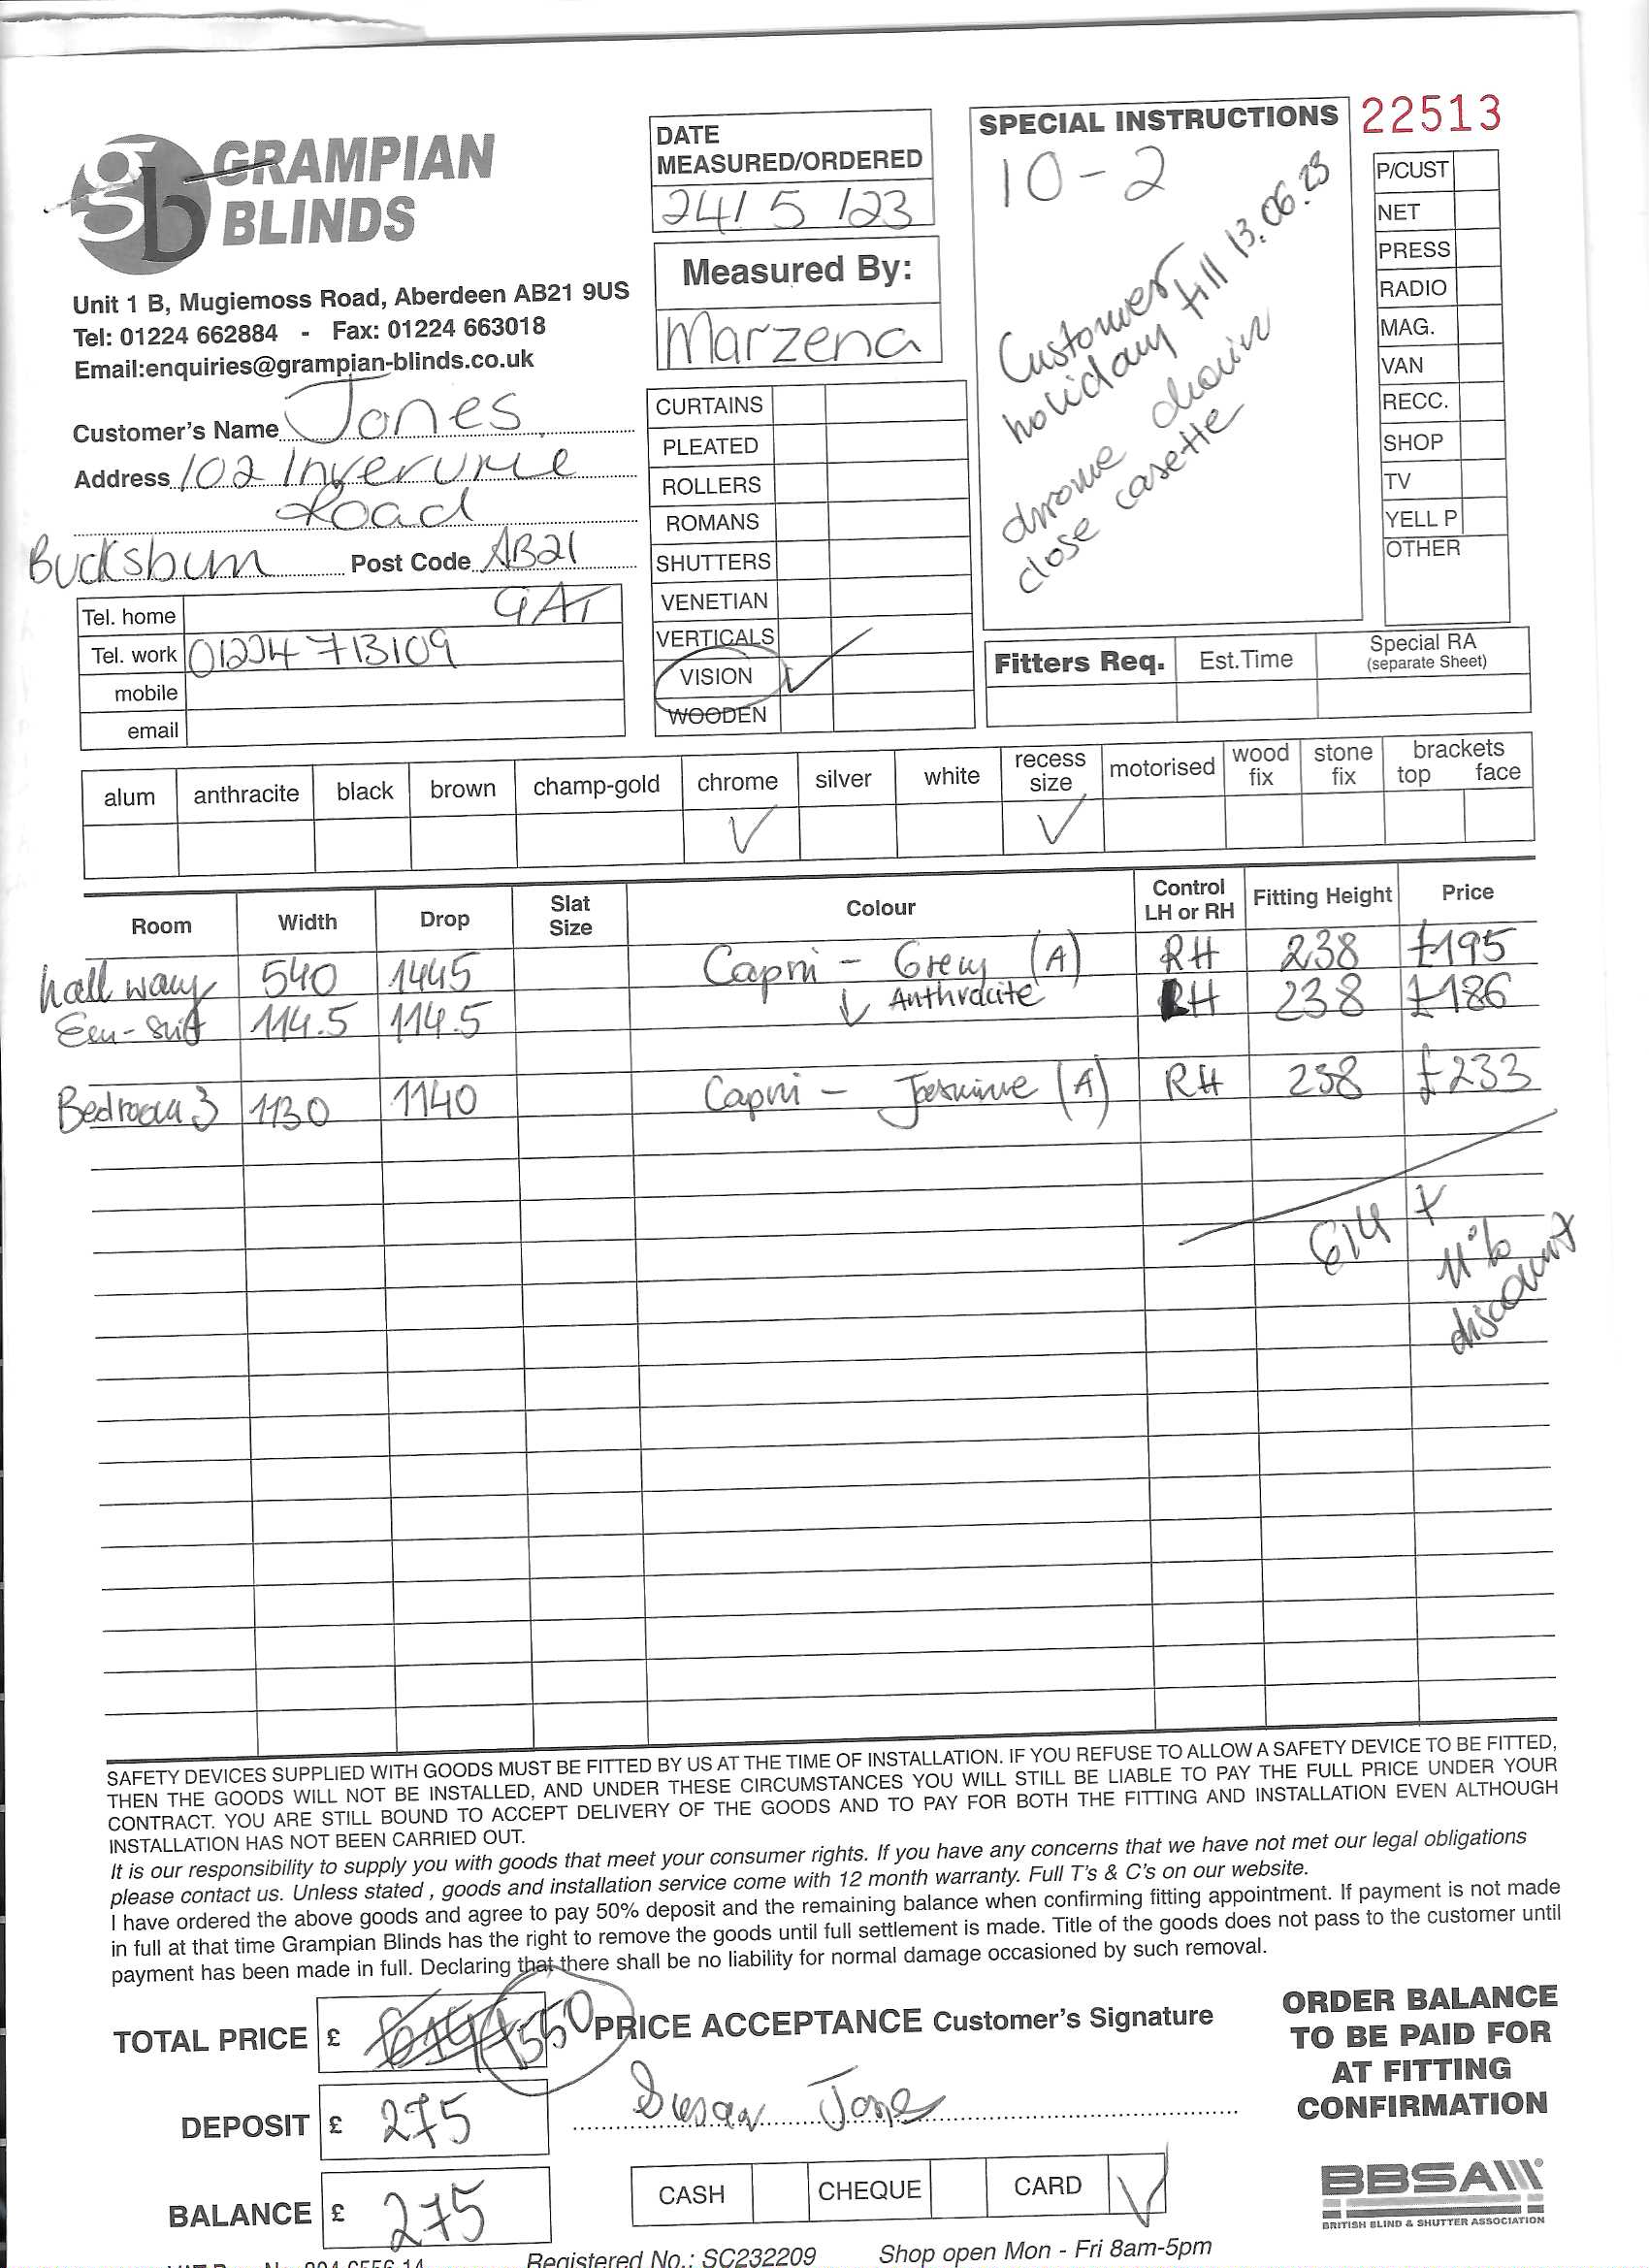 GRAMPIAN
BLINDS
Unit 1 B, Mugiemoss Road, Aberdeen AB21 9US
Tel: 01224 662884 - Fax: 01224 663018
Email:enquiries@grampian-blinds.co.uk
Customer's Name Jones
Address 102 Inverurie
Road
Bucksburn Post Code AB21
9AT
Tel. home
Tel. work 01224 713109
mobile
email
DATE
MEASURED/ORDERED
24/5/23
Measured By:
Marzena
CURTAINS
PLEATED
ROLLERS
ROMANS
SHUTTERS
VENETIAN
VERTICALS
VISION ✓
WOODEN
SPECIAL INSTRUCTIONS
10-2
Customer
holiday till 13.06.23
chrome chain
close casette
22513
P/CUST
NET
PRESS
RADIO
MAG.
VAN
RECC.
SHOP
TV
YELL P
OTHER
Fitters Req. Est.Time Special RA
(separate Sheet)
alum anthracite black brown champ-gold chrome ✓ silver white recess size ✓ motorised wood fix stone fix brackets top face
Room Width Drop Slat Size Colour Control LH or RH Fitting Height Price
hall way 540 1445 Capri - Grey (A) RH 238 £195
Een-suit 114.5 114.5 ↓ Anthracite LH 238 £186
Bedroom 3 1130 1140 Capri - Jasmine (A) RH 238 £233
614 £
11%
discount
SAFETY DEVICES SUPPLIED WITH GOODS MUST BE FITTED BY US AT THE TIME OF INSTALLATION. IF YOU REFUSE TO ALLOW A SAFETY DEVICE TO BE FITTED,
THEN THE GOODS WILL NOT BE INSTALLED, AND UNDER THESE CIRCUMSTANCES YOU WILL STILL BE LIABLE TO PAY THE FULL PRICE UNDER YOUR
CONTRACT. YOU ARE STILL BOUND TO ACCEPT DELIVERY OF THE GOODS AND TO PAY FOR BOTH THE FITTING AND INSTALLATION EVEN ALTHOUGH
INSTALLATION HAS NOT BEEN CARRIED OUT.
It is our responsibility to supply you with goods that meet your consumer rights. If you have any concerns that we have not met our legal obligations
please contact us. Unless stated , goods and installation service come with 12 month warranty. Full T's & C's on our website.
I have ordered the above goods and agree to pay 50% deposit and the remaining balance when confirming fitting appointment. If payment is not made
in full at that time Grampian Blinds has the right to remove the goods until full settlement is made. Title of the goods does not pass to the customer until
payment has been made in full. Declaring that there shall be no liability for normal damage occasioned by such removal.
TOTAL PRICE £ 614 550
PRICE ACCEPTANCE Customer's Signature
Susan Jones
DEPOSIT £ 275
BALANCE £ 275
CASH CHEQUE CARD ✓
ORDER BALANCE
TO BE PAID FOR
AT FITTING
CONFIRMATION
BBSA
BRITISH BLIND & SHUTTER ASSOCIATION
Registered No.: SC232209 Shop open Mon - Fri 8am-5pm